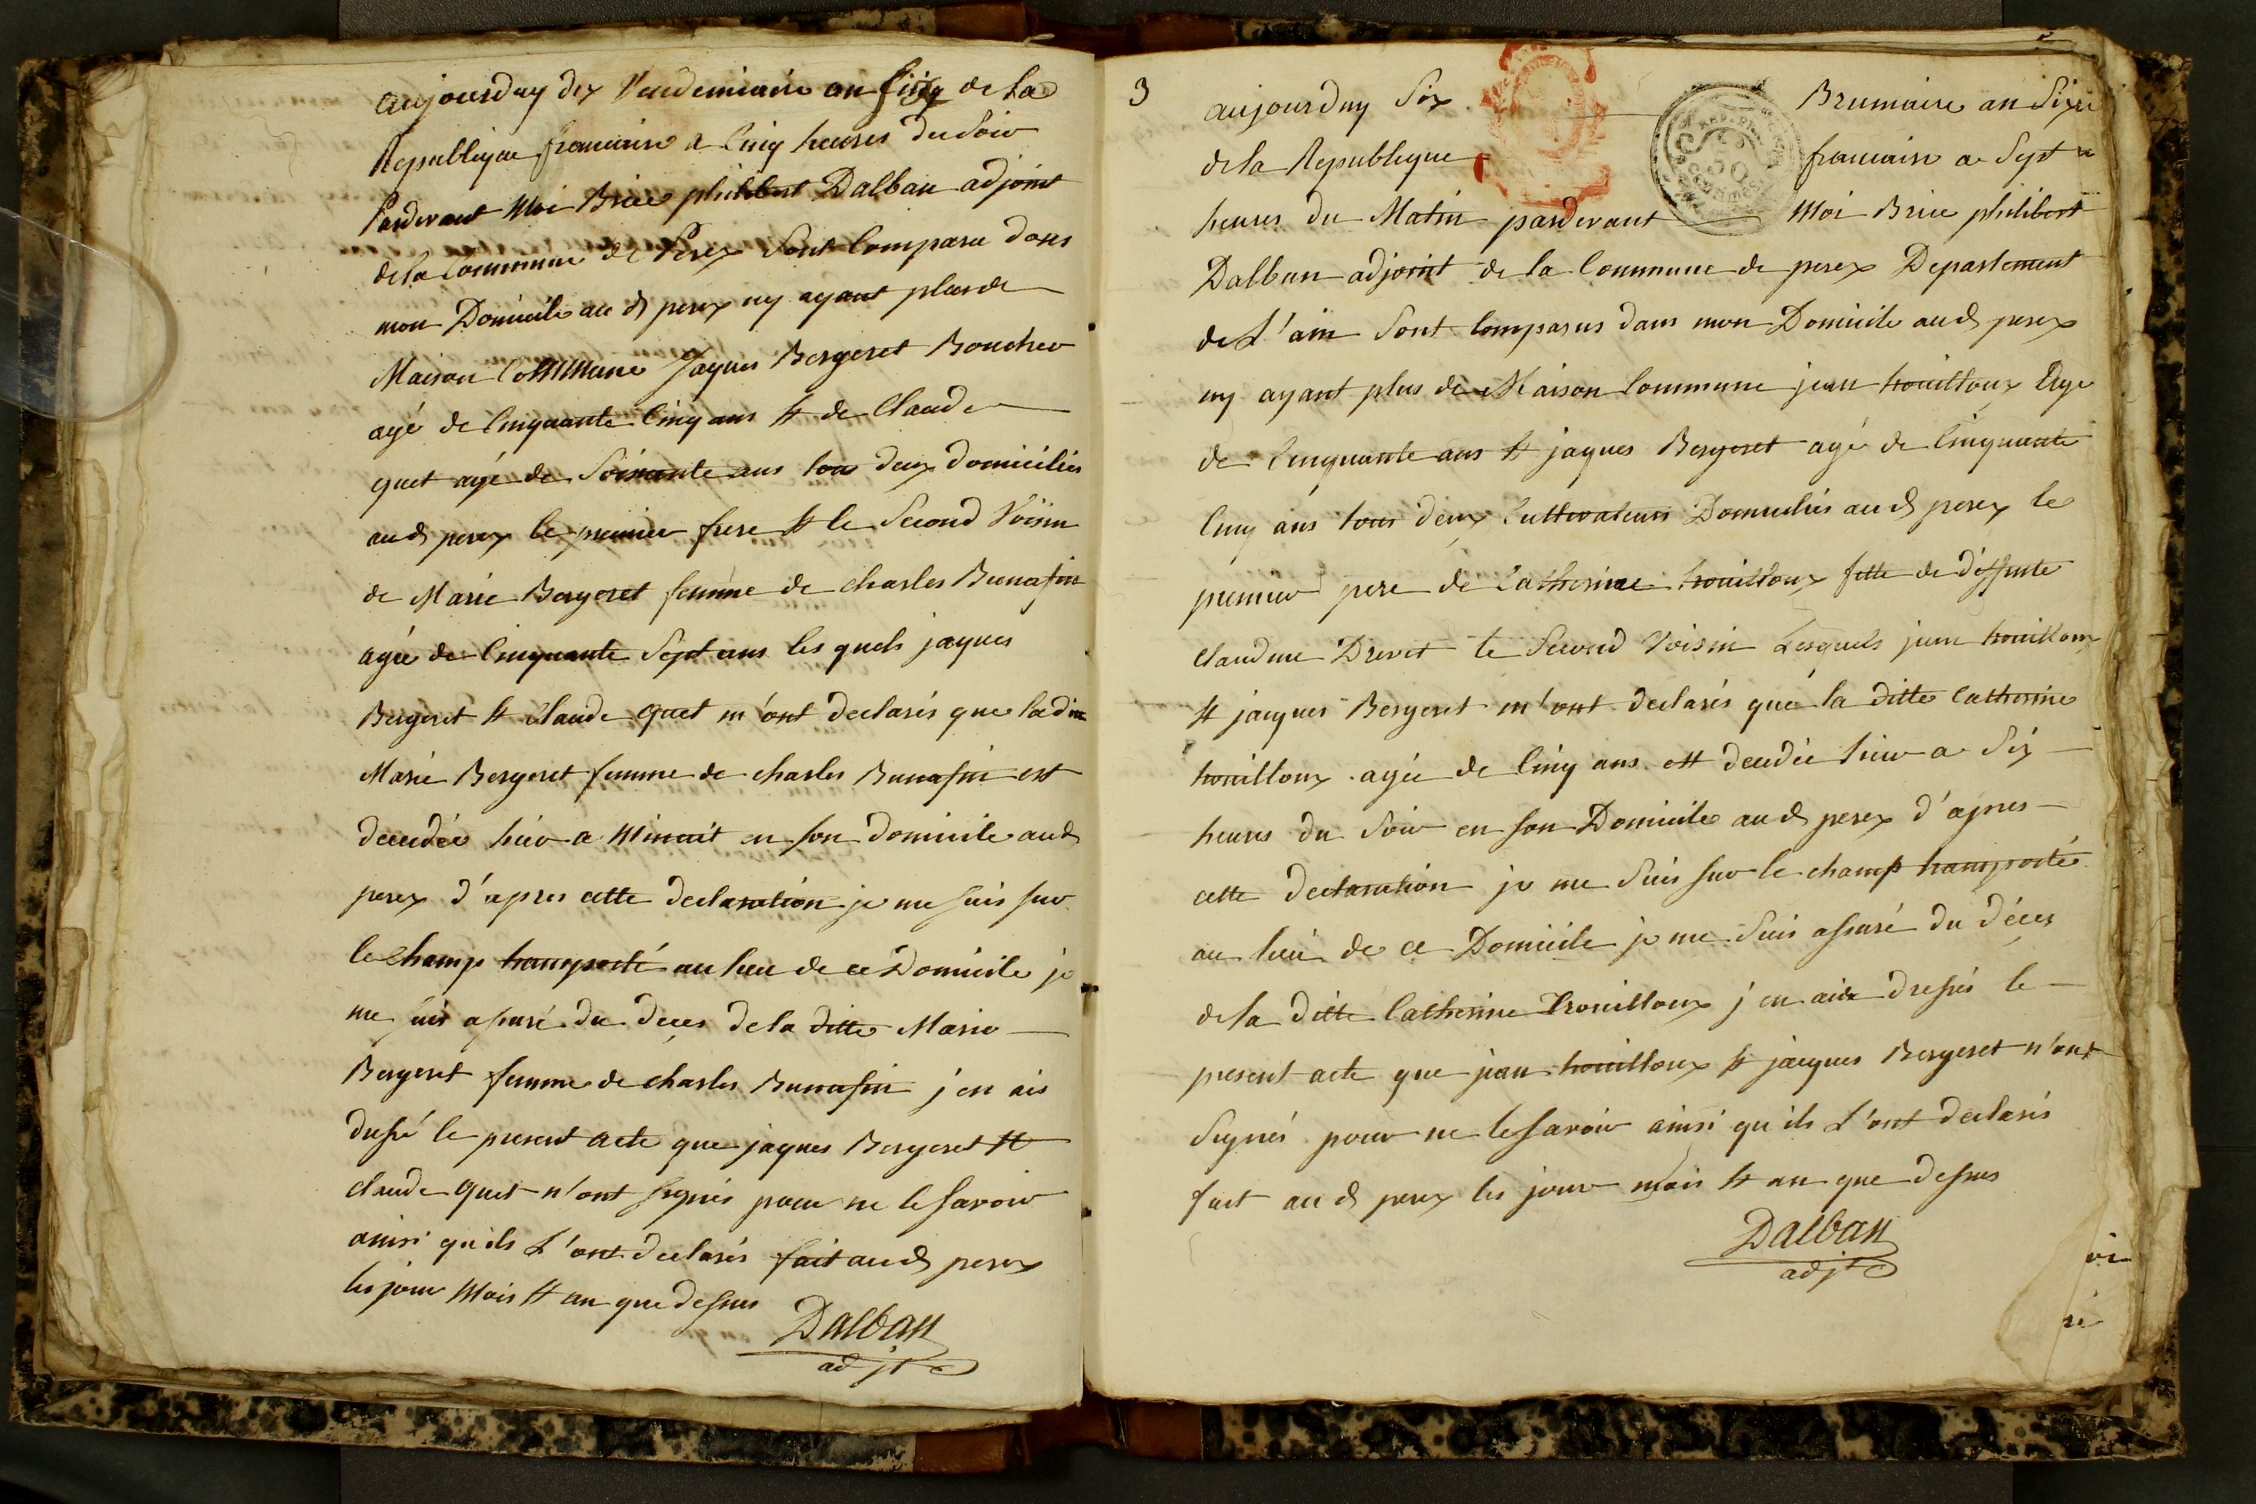 aujourduy dix Vendemiaire an Sixe de la
Republique francaise a Cinq heures du Soir
Pardevant Moi Brice philibert Dalban adjoint
de la Commune de Perex Sont Comparu dans
mon Domicile au d perex ny ayant plus de
Maison Commune Jaques Bergeret Boucher
agé de Cinquante Cinq ans & de Claude
quet agé de Soixante ans tous deux domiciliés
au d perex le premier frere & le Second Voisin
de Marie Bergeret femme de charles Bunafin
agée de Cinquante Sept ans les quels jaques
Bergeret & Claude quet m'ont declarés que ladite
Marie Bergeret femme de charles Bunafin est
decedée hier a Minuit en son domicile au d
perex d'apres cette declaration je me suis sur
le Champ transporté au lieu de ce Domicile je
me suis assuré du deces de la ditte Marie
Bergeret femme de charles Bunafin j'en ais
dressé le present acte que jaques Bergeret &
claude quet n'ont signés pour ne le savoir
ainsi quils L'ont declarés fait au d perex
les jour Mois & an que dessus
Dalban
adjt
3
aujourduy Six Brumaire an Sixe
de la Republique francaise a Sept
heures du Matin pardevant Moi Brice philibert
Dalban adjoint de la Commune de perex Departement
de L'ain Sont Comparus dans mon Domicile au d perex
ny ayant plus de Maison Commune jean trouilloux Age
de Cinquante ans & jaques Bergeret agé de Cinquante
Cinq ans tous deux Cultivateurs Domiciliés au d perex le
premier pere de Catherine trouilloux fille de déffunte
claudine Drevet le Second Voisin Lesquels jean trouilloux
& jacques Bergeret m'ont declarés que la ditte Catherine
trouilloux agée de Cinq ans est decedée hier a Six
heures du Soir en son Domicile au d perex d'apres
cette declaration je me suis sur le champ transporté
au lieu de ce Domicile je me suis assuré du déces
de la ditte Catherine trouilloux j'en ais dressés le
present acte que jean trouilloux & jacques Bergeret n'ont
Signés pour ne le savoir ainsi quils L'ont declarés
fait au d perex les jour mois & an que dessus
Dalban
adjt